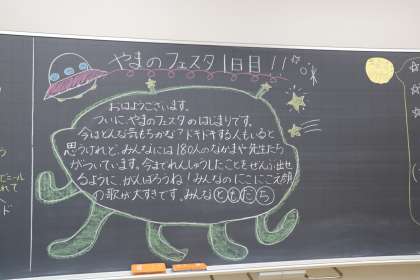 やまのフェスタ1日目!!
おはようございます。
ついに、やまのフェスタのはじまりです。
今はどんな気もちかな?ドキドキする人もいると
思うけれど、みんなには180人のなかまや先生たち
がついています。今までれんしゅうしたことをぜんぶ出せ
るように、がんばろうね!みんなのにこにこえ顔
の歌が大すきです。みんなともだち